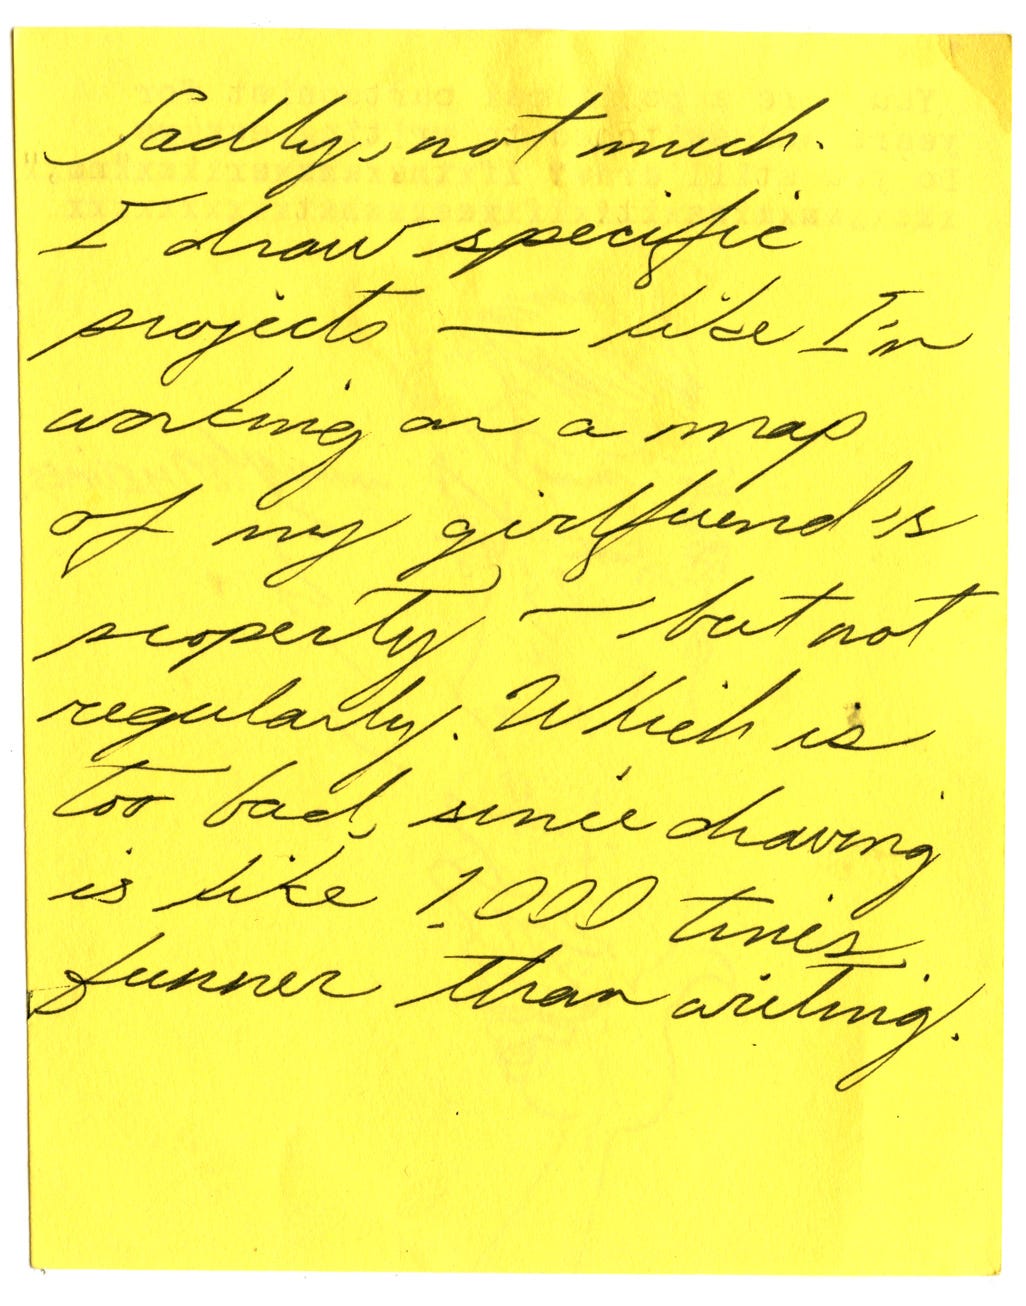 Sadly, not much.
I draw specific
projects — like I'm
working on a map
of my girlfriend's
property — but not
regularly. Which is
too bad, since drawing
is like 1,000 times
funner than writing.